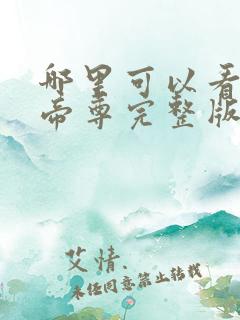 哪里可以看
帝尊完整版
艾情.
未经同意禁止转载